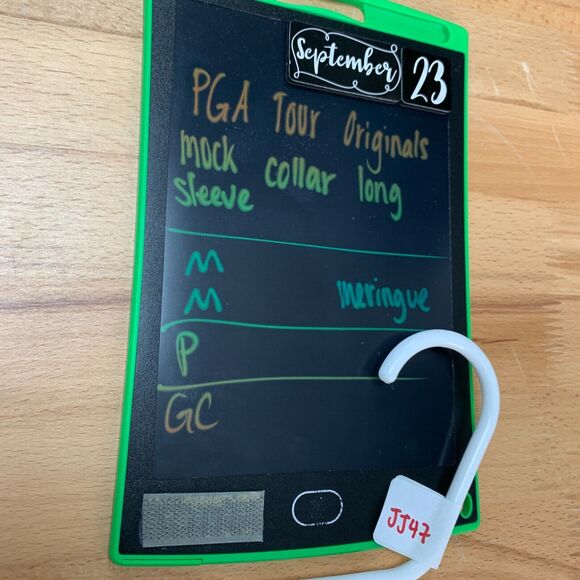 September 23
PGA Tour Originals
mock collar long
sleeve
M
M meringue
P
GC
JJ47